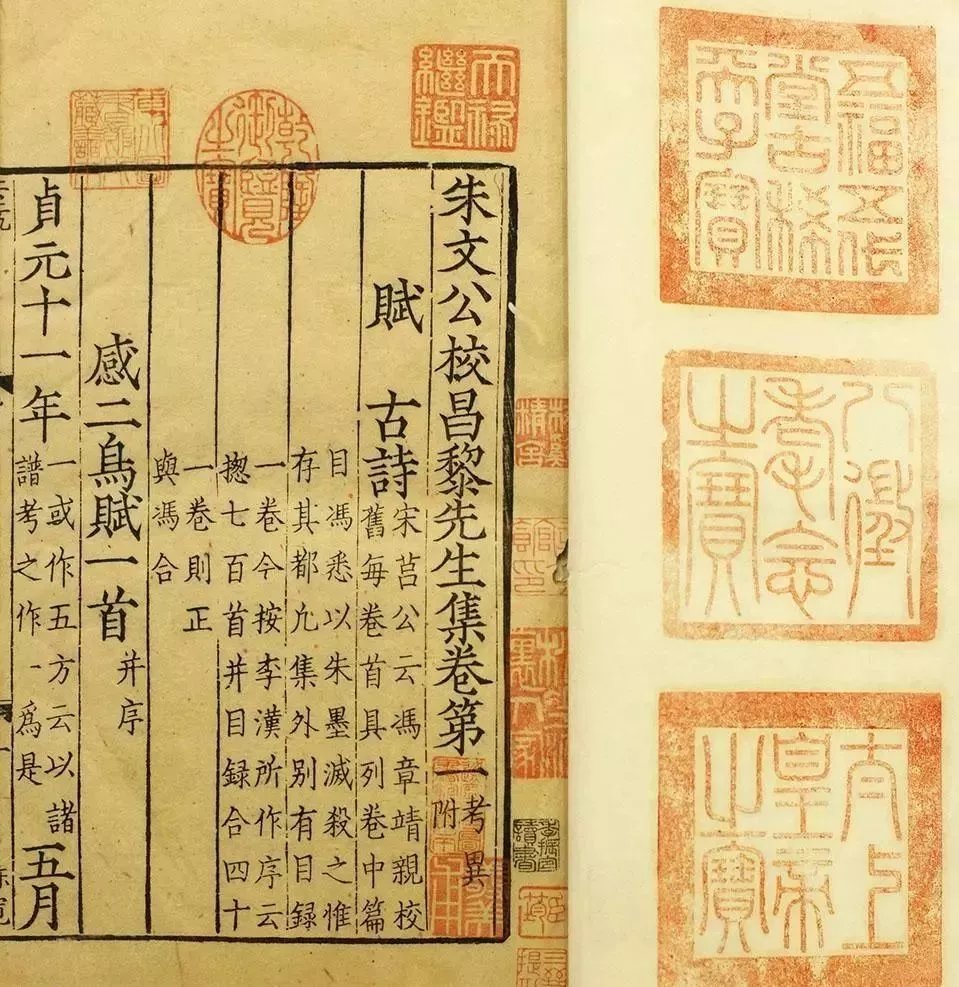 朱文公校昌黎先生集卷第一 考異附
賦 古詩 宋莒公云馮章靖親校
舊每卷首具列卷中篇
目馮悉以朱墨滅殺之惟
存其都凢集外别有目録
一卷今按李漢所作序云
揔七百首并目録合四十
一卷則正
與馮合
感二鳥賦一首 并序
貞元十一年 一或作五方云以諸
譜考之作一爲是 五月
天祿繼鑑
乾隆御覽之寶
五福五代堂古稀天子寶
八徵耄念之寶
太上皇帝之寶